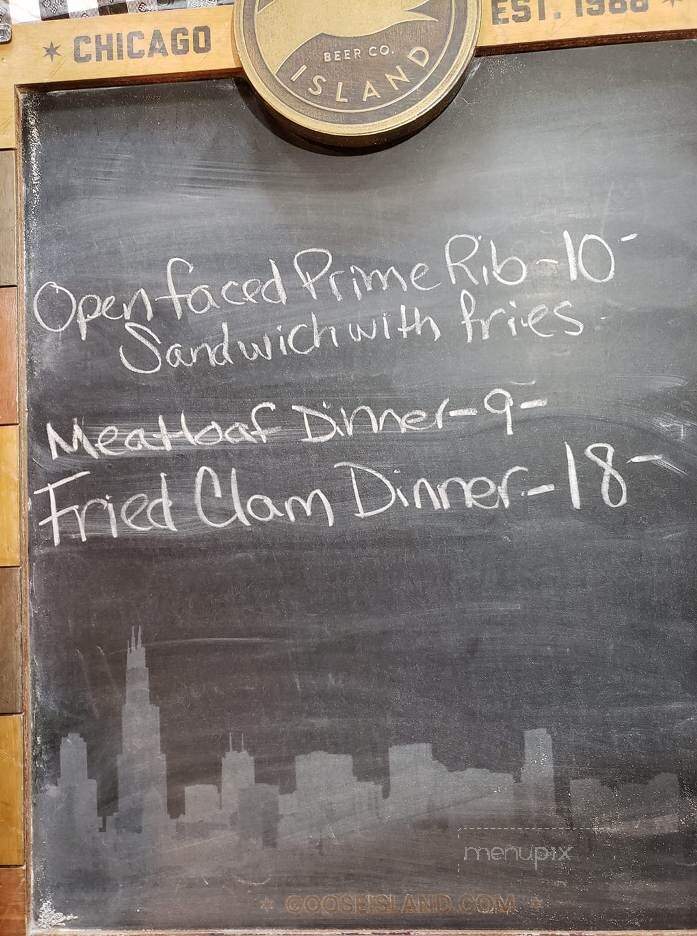 CHICAGO
EST. 1988
BEER CO.
ISLAND
Open faced Prime Rib-10-
Sandwich with fries
Meatloaf Dinner-9-
Fried Clam Dinner-18-
menupix
* GOOSEISLAND.COM *